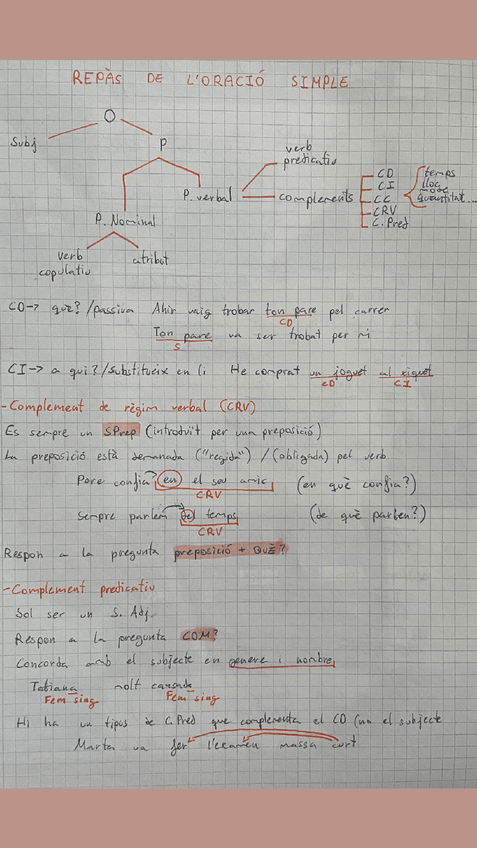 REPÀS DE L'ORACIÓ SIMPLE
O
Subj
P
P. Nominal
verb copulatiu
atribut
P. verbal
verb
predicatiu
complements
CD
CI
CC
CRV
C. Pred
temps
lloc
mode
quantitat...
CD → què? /passiva Ahir vaig trobar ton pare pel carrer
CD
Ton pare va ser trobat per mi
S
CI → a qui? /substitueix en li He comprat un joguet al xiquet
CD CI
- Complement de règim verbal (CRV)
Es sempre un S.Prep (introduït per una preposició)
La preposició està demanada ("regida") / (obligada) pel verb
Pere confia en el seu amic (en què confia?)
CRV
Sempre parlem del temps (de què parlen?)
CRV
Respon a la pregunta preposició + QUÈ?
- Complement predicatiu
Sol ser un S. Adj.
Respon a la pregunta COM?
Concorda amb el subjecte en genere i nombre
Tatiana molt cansada
Fem sing Fem sing
Hi ha un tipus de C.Pred que complementa el CD (no el subjecte
Marta va fer l'examen massa curt